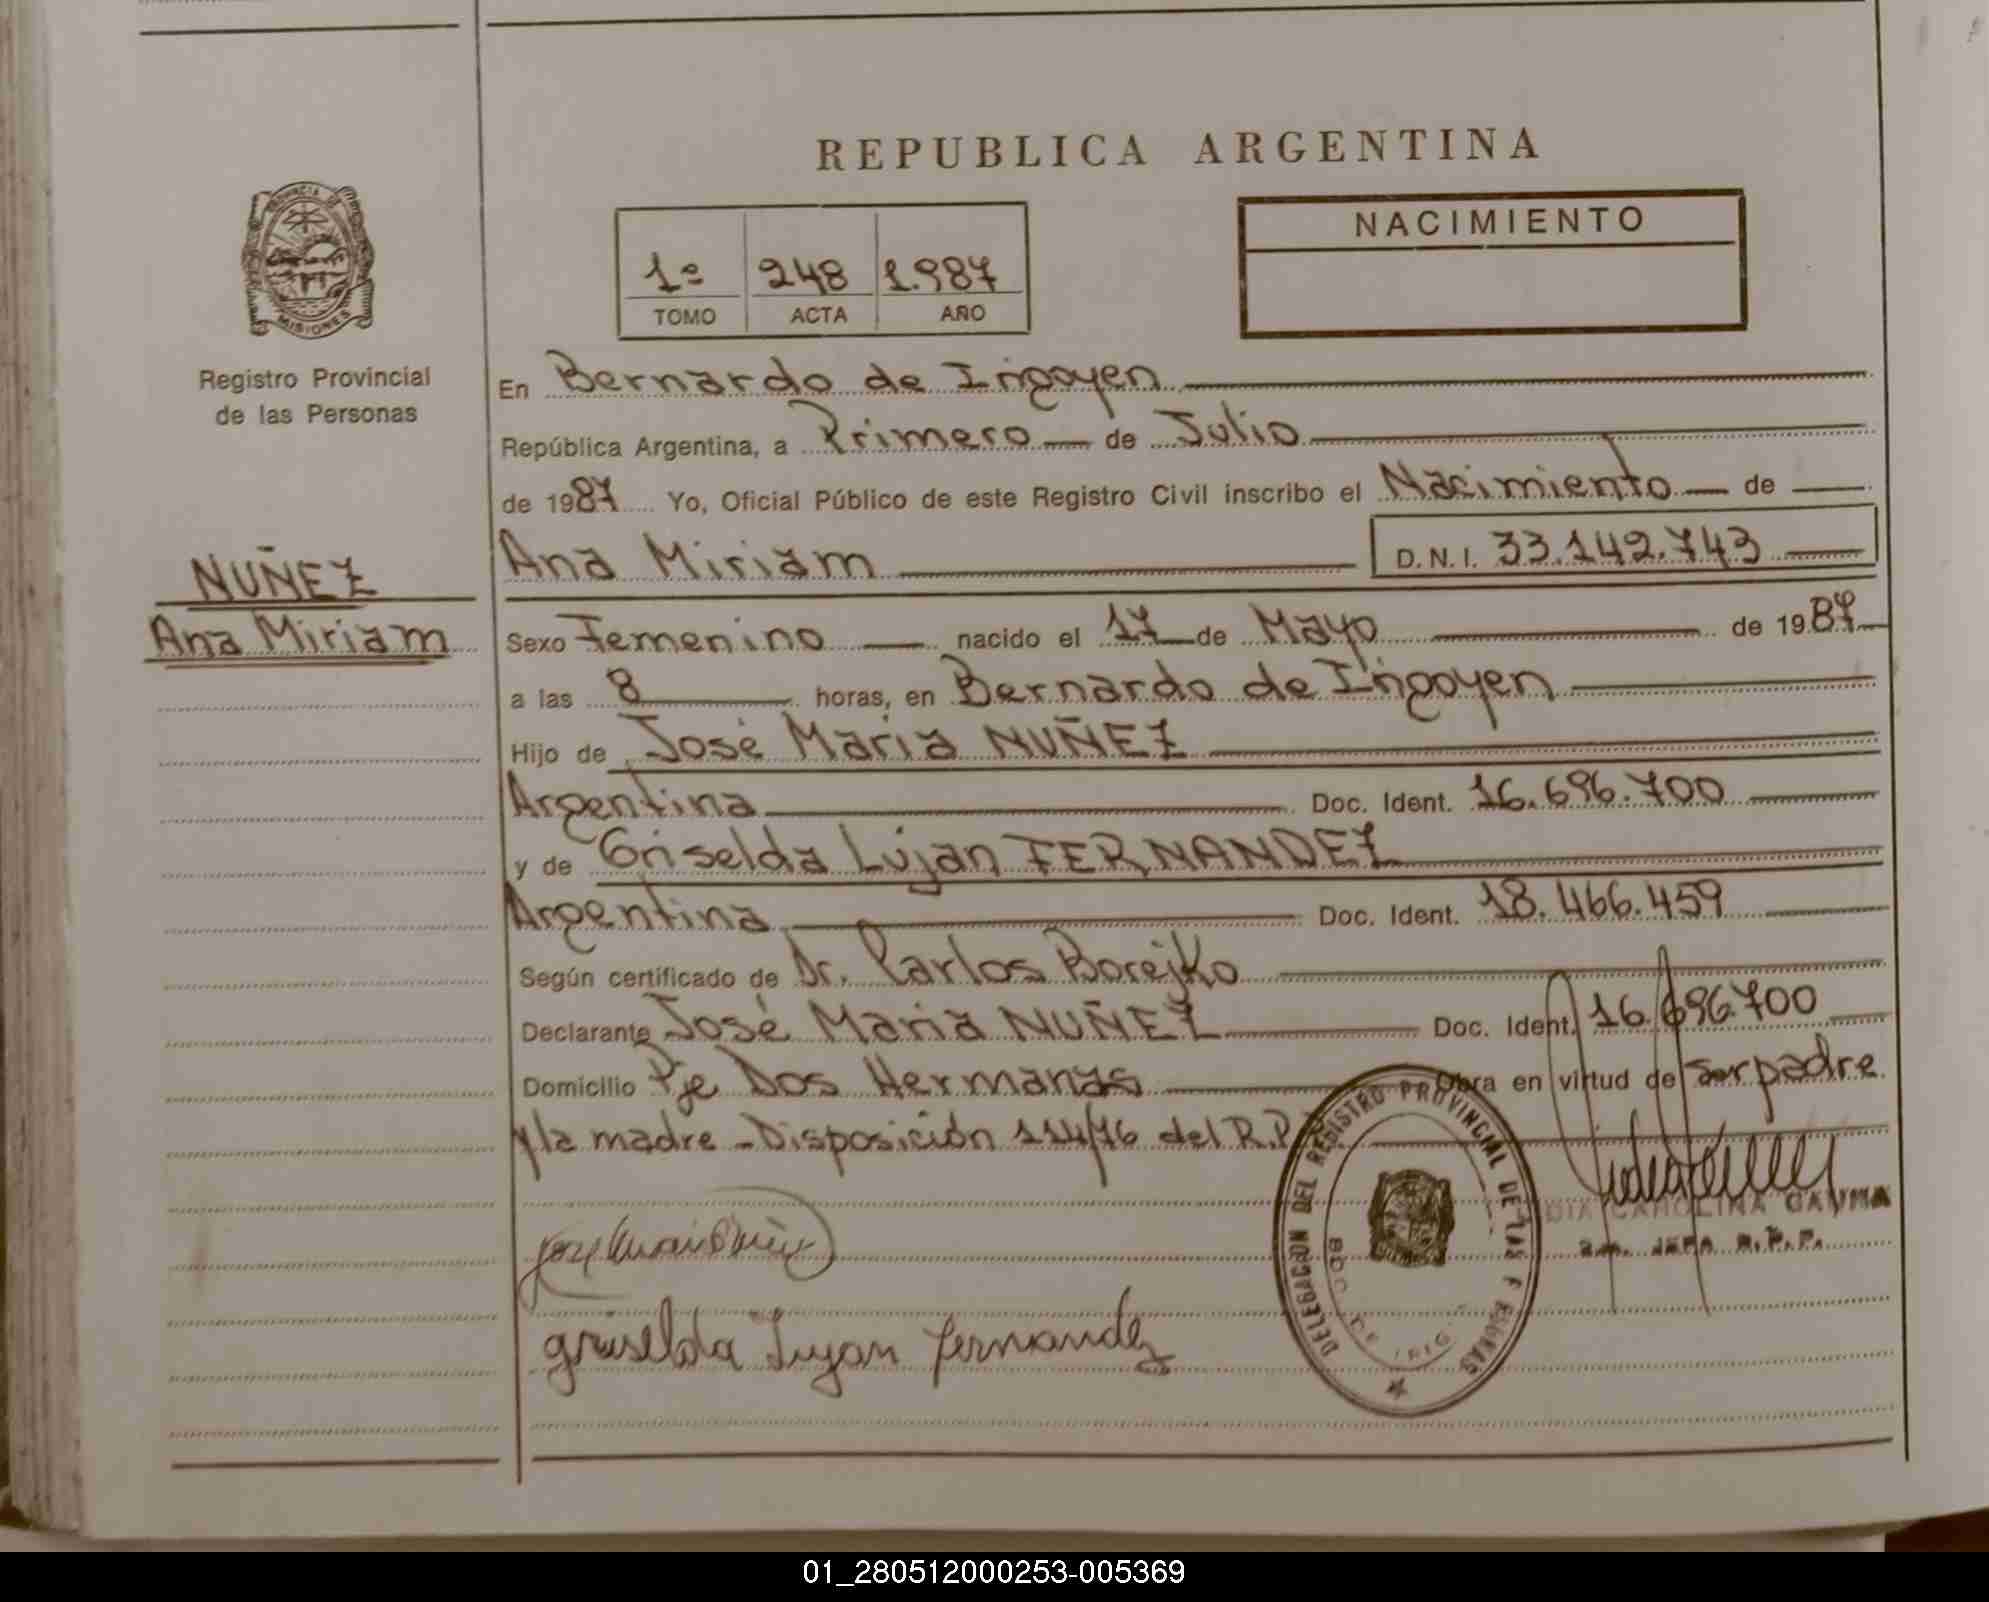 REPUBLICA ARGENTINA
PROVINCIA DE
MISIONES
Registro Provincial
de las Personas
NUÑEZ
Ana Miriam
1º 248 1.987
TOMO ACTA AÑO
NACIMIENTO
En Bernardo de Irigoyen
República Argentina, a Primero de Julio
de 1987 Yo, Oficial Público de este Registro Civil inscribo el Nacimiento de
Ana Miriam D.N.I. 33.142.743
Sexo Femenino nacido el 17 de Mayo de 1987
a las 8 horas, en Bernardo de Irigoyen
Hijo de José Maria NUÑEZ
Argentina Doc. Ident. 16.696.700
y de Griselda Lujan FERNANDEZ
Argentina Doc. Ident. 18.466.459
Según certificado de Dr. Carlos Borejko
Declarante José Maria NUÑEZ Doc. Ident. 16.696.700
Domicilio Pje Dos Hermanas Obra en virtud de ser padre
y la madre - Disposición 114/76 del R.P.
DELEGACION DEL REGISTRO PROVINCIAL DE LAS PERSONAS
BDO DE IRIG.
CAROLINA
JEFA R.P.P.
Griselda Lujan Fernandez
01_280512000253-005369